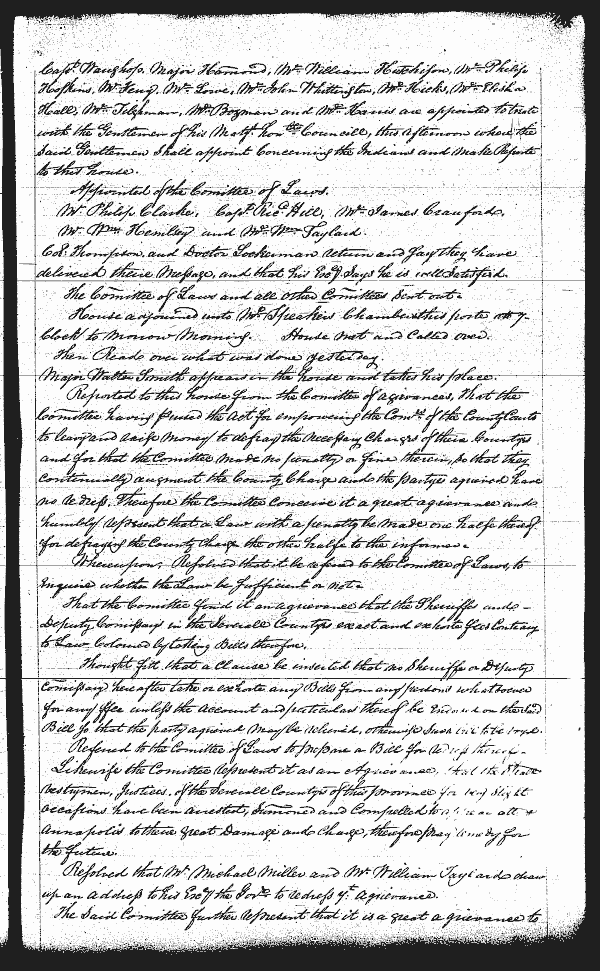 Capt. Waughop, Major Hamond, Mr. William Hutchison, Mr. Philip
Hoskins, Mr. Fray, Mr. Lowe, Mr. John Whittington, Mr. Hicks, Mr. Elisha
Hall, Mr. Tilghman, Mr. Bozman and Mr. Harris are appointed to treat
with the Gentlemen of his Maty's honble Councill, this afternoon when the
Said Gentlemen Shall appoint Concerning the Indians and make Reporte
to this house.
Appointed of the Comittee of Laws.
Mr. Philip Clarke, Capt. Ricd. Hill, Mr. James Crauford,
Mr. Wm. Hemsley and Mr. Wm. Taylard.
Col. Thompson, and Doctor Lockerman return and Say they have
delivered theire Message, and that his Excy. Says he is well Satisfied.
The Comittee of Laws and all other Comittees Sent out.
House adjourned unto Mr. Speakers Chamber this porte att 7
Clock to Morrow Morning. House met and Called over.
Then Reade over what was done yesterday.
Major Walter Smith appears in the house and takes his place.
Reported to this house from the Comittee of agrievances, That the
Comittee having perused the Act for empowering the Comrs. of the County Courts
to leavy and raise Money to defray the necessary Charges of theire Countys
and for that the Comittee made no penalty or fine therein, So that they
continually augment the County Charge and the partys agrieved have
no redress. Therefore the Comittee Conceive it a great agrievance and
humbly represent that a Law with a penalty be made one halfe thereof
for defraying the County Charge the other halfe to the informer.
Whereupon, Resolved that it be refered to the Comittee of Laws, to
Enquire whether the Law be Sufficient or not.
That the Comittee find it an agrievance that the Sheriffs and
Deputy Comissarys in the Severall Countys exact and exhorte fees Contrary
to Law Coloured by taking Bills therefore.
Thought fitt that a Clause be inserted that no Sherriffe or Deputy
Comissary hereafter take or exhorte any Bills from any persons whatsoever
for any ffee unless the Account and particulars thereof be on the Said
Bill So that the party agrieved may be relieved, otherwise Such bill to be void.
Referred to the Comittee of Laws to prepare a Bill for redress thereof.
Likewise the Comittee represent it as an Agrievance, that the
Vestrymen, Justices, of the Severall Countys of this province for very Slight
occasions have been arrested, Sumoned and Compelled to att
Annapolis to their great Damage and Charge, therefore pray remedy for
the future.
Resolved that Mr. Michael Miller and Mr. William Taylard draw
up an address to his Excy. the Govr. to redress yt. agrievance.
The Said Comittee further represent that it is a great agrievance to